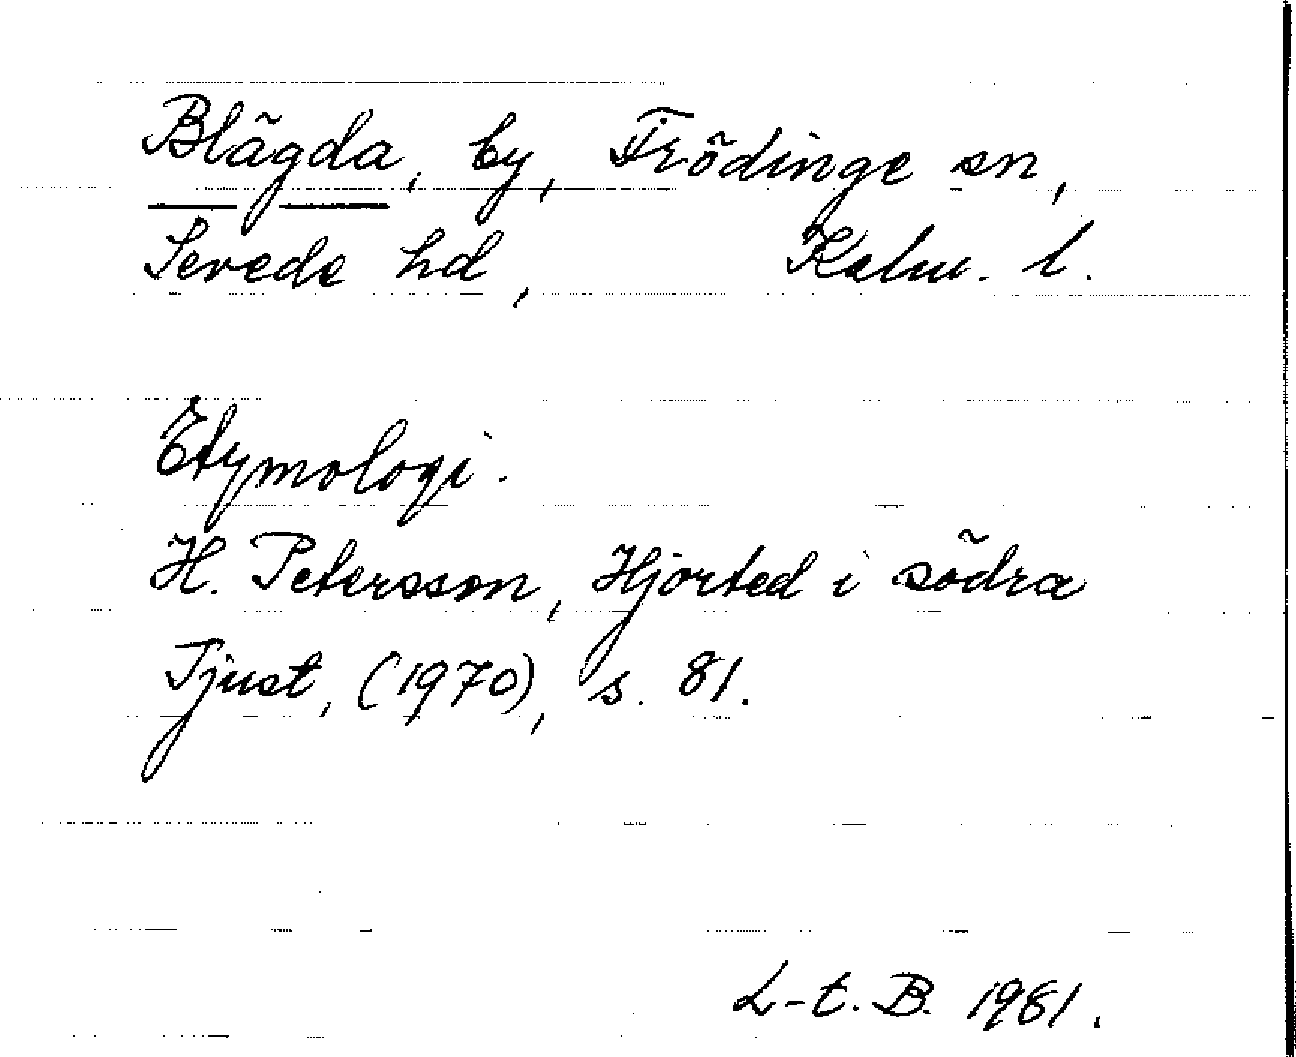 Blägda, by, Frödinge sn,
Sevede hd, Kalm. l.
Etymologi.
H. Petersson, Hjorted i södra
Tjust, (1970), s. 81.
L-t. B. 1981.